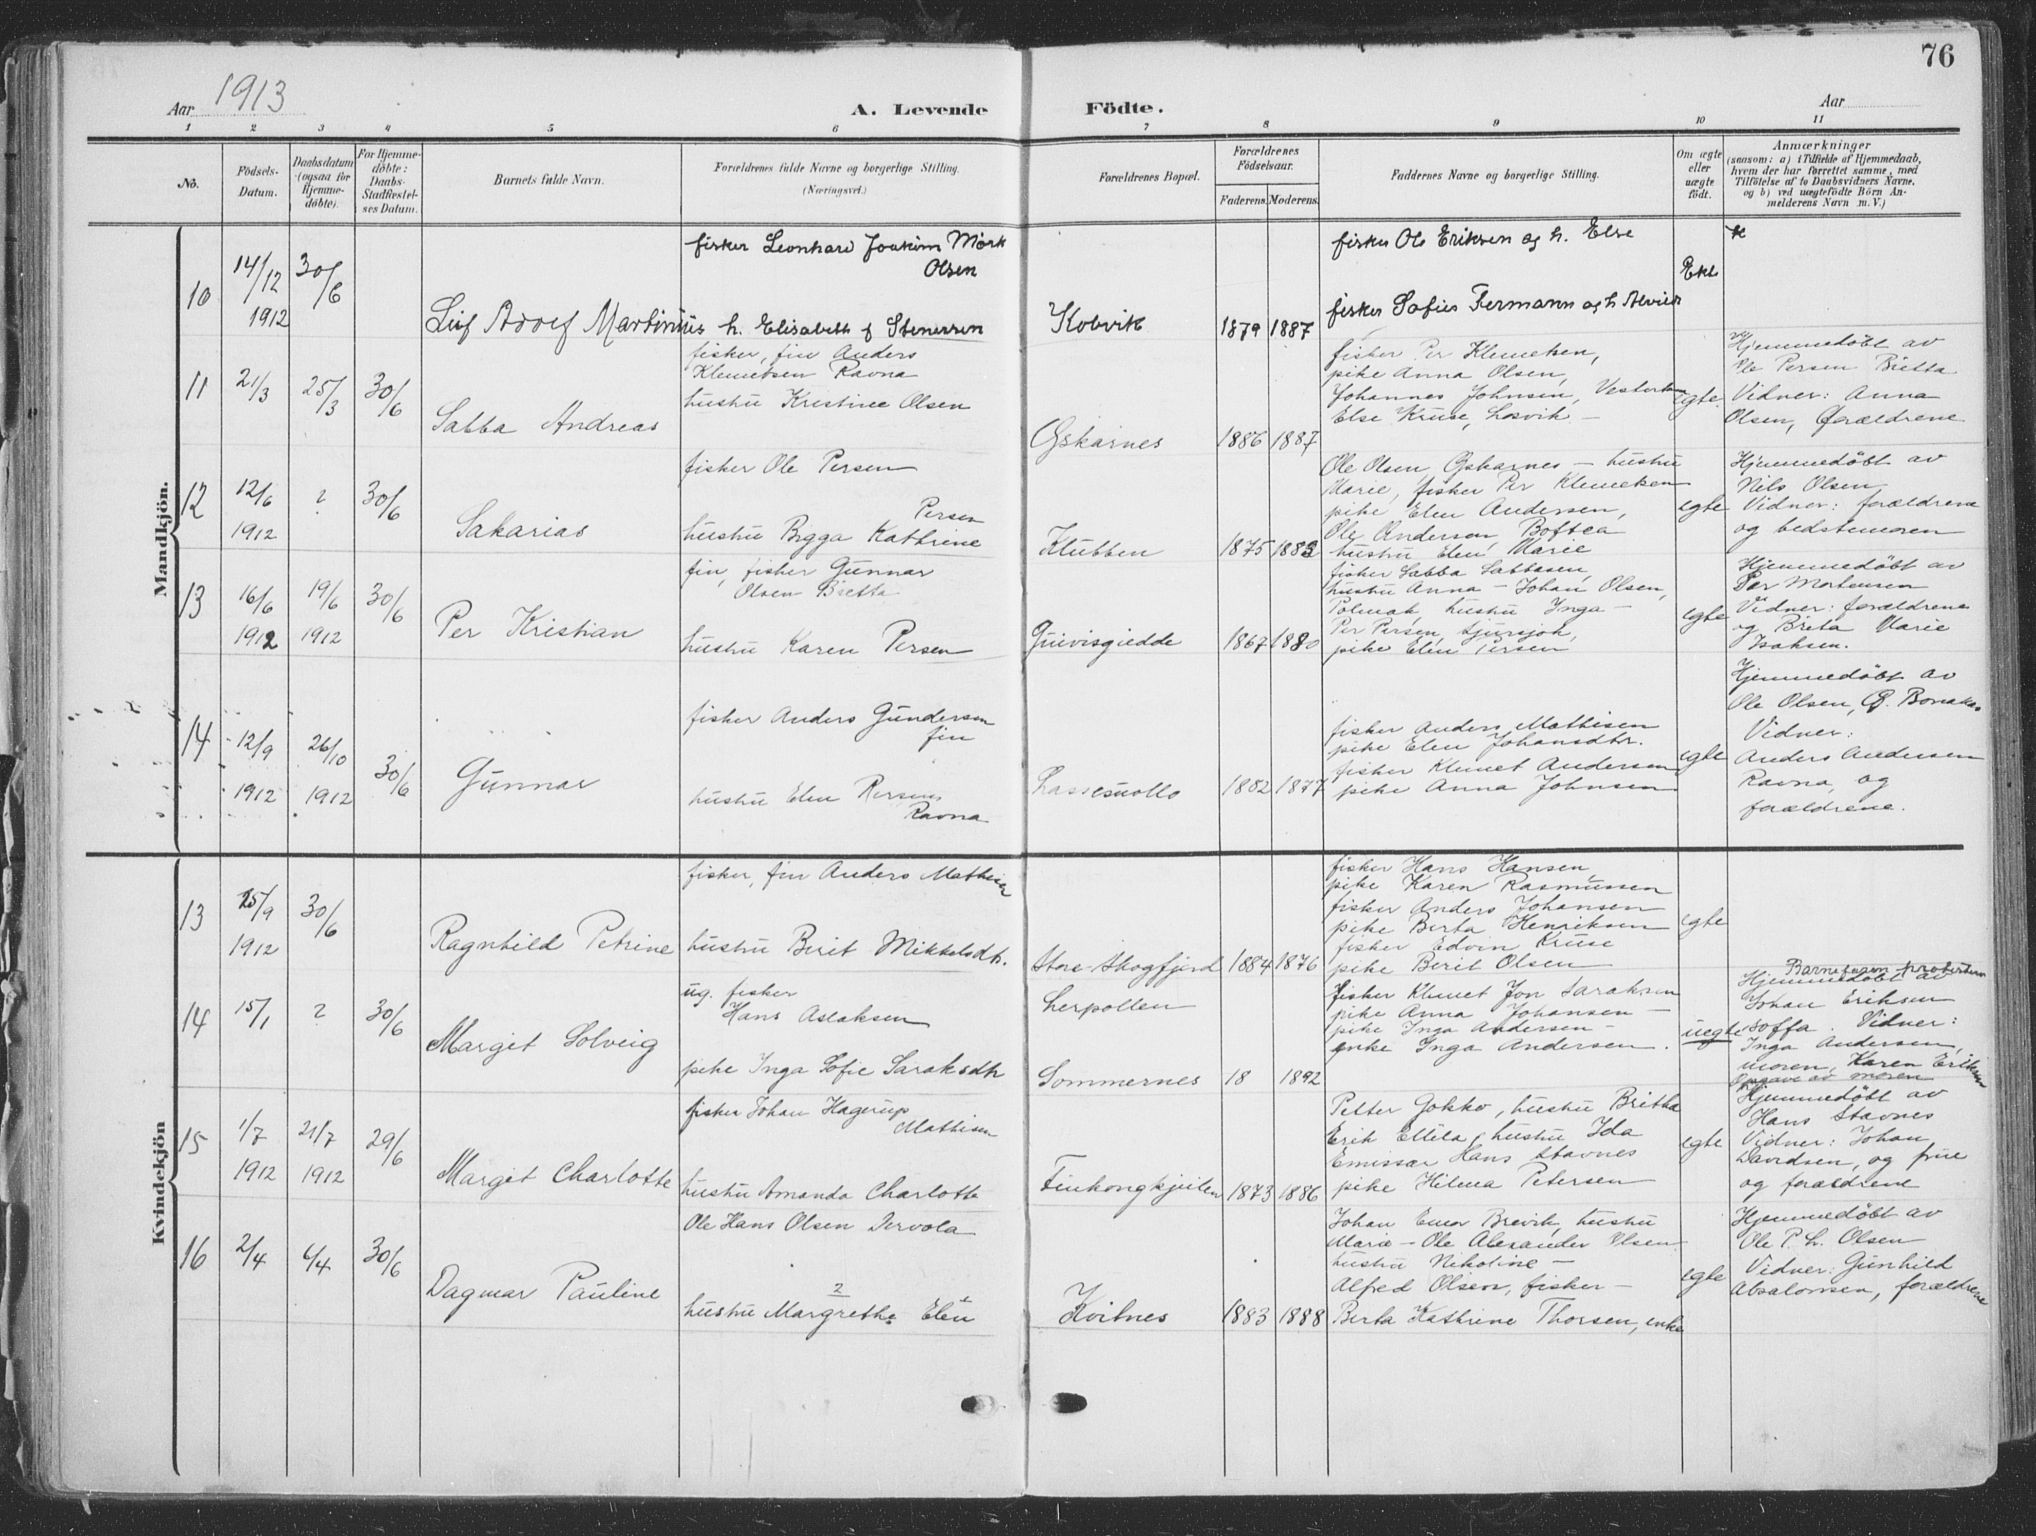 76
Aar 1913
A. Levende Födte.
Aar
1 2 3 4 5 6 7 8 9 10 11
No.
Födsels-
Datum.
Daabsdatum
(ogsaa for
Hjemme-
döbte).
For Hjemme-
døbte:
Daabs-
Stadfæstel-
ses Datum.
Barnets fulde Navn.
Forældrenes fulde Navne og borgerlige Stilling.
(Næringsvei.)
Forældrenes Bopæl.
Forældrenes
Födselsaar.
Faderens. Moderens.
Faddernes Navne og borgerlige Stilling.
Om ægte
eller
uægte
födt.
Anmærkninger
(saasom: a) i Tilfælde af Hjemmedaab,
hvem der har forrettet samme, med
Tilföielse af to Daabsvidners Navne,
og b) ved uægtefödte Börn An-
melderens Navn m. V.)
Mandkjön.
10
14/12
1912
30/6
Leif Adolf Martinius
fisker Leonhard Joakim Mørk
Olsen
h. Elisabeth f Stenersen
Kobvik
1879 1887
fisker Ole Eriksen og h. Else
fisker Sofus Fermann og h Alvilde
Ekte
11
21/3
25/3
30/6
Sabba Andreas
fisker, fin Anders
Klemetsen Ravna
hustru Kristine Olsen
Gskarnes
1886 1887
fisker Per Klemetsen,
pike Anna Olsen,
Johannes Johnsen, Vestertana
Else Kruse, Losvik –
egte
Hjemmedøbt av
Ole Persen Britta
Vidner: Anna
Olsen, forældrene
12
12/6
1912
?
30/6
Sakarias
fisker Ole Persen
Persen
hustru Bigga Kathrine
Klubben
1875 1883
Ole Olsen Gskarnes – hustru
Marie, fisker Per Klemetsen
pike Elen Andersen,
Ole Andersen Boftca
hustru Elen Marie
egte
Hjemmedøbt av
Nils Olsen
Vidner: forældrene
og bedstemoren
13
16/6
1912
19/6
1912
30/6
Per Kristian
fin, fisker Gunnar
Olsen Britta
hustru Karen Persen
Guivisgiedde
1867 1880
fisker Sabba Sabbasen,
hustru Anna – Johan Olsen,
Polmak, hustru Inga –
Per Persen,
pike Elen Persen
egte
Hjemmedøbt av
Per Mortensen
Vidner: forældrene
og Brita Marie
Isaksen.
14
12/9
1912
26/10
1912
30/6
Gunnar
fisker Anders Gundersen
fin
hustru Elen Persen
Ravna
Lassesuollo
1882 1877
fisker Anders Mathisen
pike Elen Johansdtr.
fisker Klemet Andersen
pike Anna Johnsen
egte
Hjemmedøbt av
Ole Olsen, G. Bonakas
Vidner:
Anders Andersen
Ravna, og
forældrene.
Kvindekjön
13
25/9
1912
30/6
Ragnhild Petrine
fisker, fin Anders Mathisen
hustru Berit Mikkelsdtr.
Store Skogfjord
1884 1876
fisker Hans Hansen
pike Karen Rasmussen
fisker Anders Johansen
pike Berta Henriksen
fisker Edvin Kruse
pike Berit Olsen
egte
14
15/1
?
30/6
Margit Solveig
ug. fisker
Hans Aslaksen
pike Inga Sofie Saraksdtr
Lerpollen
Sommernes
18 1892
fisker Klemet Jon Saraksen
pike Anna Johansen –
pike Inga Andersen –
enke Inga Andersen.
uegte
Barnefaren protesterer
Hjemmedøbt av
Johan Eriksen
Soffa. Vidner:
Inga Andersen,
moren, Karen Eriksen
Opgave av moren
15
1/7
1912
21/7
1912
29/6
Margit Charlotte
fisker Johan Hagerup
Mathisen
hustru Amanda Charlotte
Finkongkjeilen
1873 1886
Petter Gokko, hustru Britha
Erik Ellila, hustru Ida
Emissær Hans Stavnes
pike Hilma Petersen
egte
Hjemmedøbt av
Hans Stavnes
Vidner: Johan
Davidsen, og frue
og forældrene
16
2/4
6/4
30/6
Dagmar Pauline
Ole Hans Olsen Dervola
2 1
hustru Margrethe Elen
Kvitnes
1883 1888
Johan Brevik, hustru
Marie – Ole Alexander Olsen
hustru Nikoline –
Alfred Olsen, fisker –
Berta Kathrine Thorsen, enke
egte
Hjemmedøbt av
Ole P. h. Olsen
Vidner: Gunhild
Absalomsen, forældrene